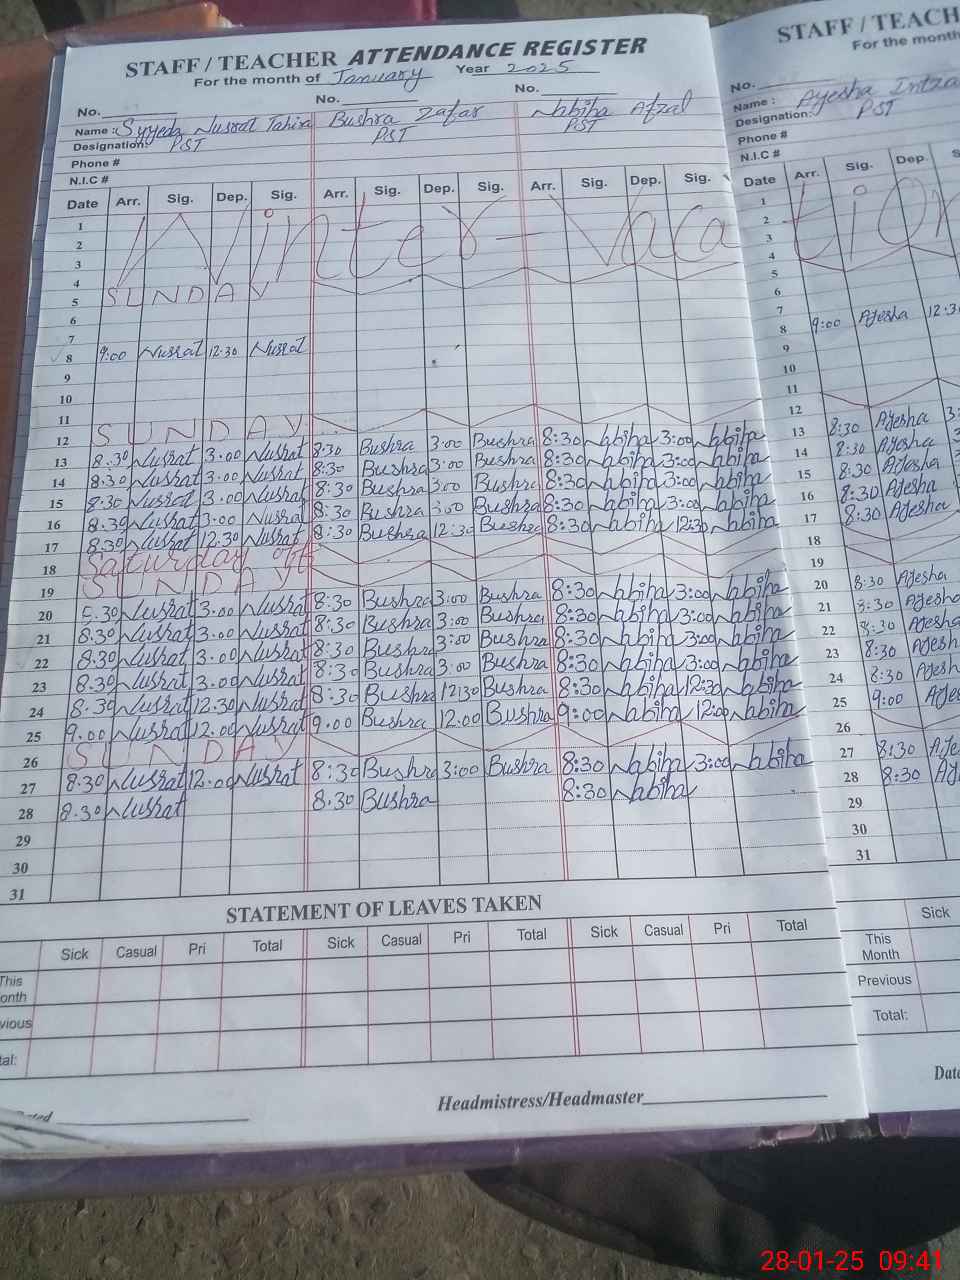 STAFF / TEACHER ATTENDANCE REGISTER
For the month of January Year 2025
No. No. No.
Name : Syyeda Nusrat Tahira Bushra Zafar Nabiha Afzal
Designation: PST PST PST
Phone #
N.I.C #
Date Arr. Sig. Dep. Sig. Arr. Sig. Dep. Sig. Arr. Sig. Dep. Sig.
Winter - Vacation
1
2
3
4
5 SUNDAY
6
7
8 9:00 Nusrat 12:30 Nusrat
9
10
11
12 SUNDAY
13 8:30 Nusrat 3:00 Nusrat 8:30 Bushra 3:00 Bushra 8:30 Nabiha 3:00 Nabiha
14 8:30 Nusrat 3:00 Nusrat 8:30 Bushra 3:00 Bushra 8:30 Nabiha 3:00 Nabiha
15 8:30 Nusrat 3:00 Nusrat 8:30 Bushra 3:00 Bushra 8:30 Nabiha 3:00 Nabiha
16 8:30 Nusrat 3:00 Nusrat 8:30 Bushra 3:00 Bushra 8:30 Nabiha 3:00 Nabiha
17 8:30 Nusrat 12:30 Nusrat 8:30 Bushra 12:30 Bushra 8:30 Nabiha 12:30 Nabiha
18 Saturday off
19 SUNDAY
20 8:30 Nusrat 3:00 Nusrat 8:30 Bushra 3:00 Bushra 8:30 Nabiha 3:00 Nabiha
21 8:30 Nusrat 3:00 Nusrat 8:30 Bushra 3:00 Bushra 8:30 Nabiha 3:00 Nabiha
22 8:30 Nusrat 3:00 Nusrat 8:30 Bushra 3:00 Bushra 8:30 Nabiha 3:00 Nabiha
23 8:30 Nusrat 3:00 Nusrat 8:30 Bushra 3:00 Bushra 8:30 Nabiha 3:00 Nabiha
24 8:30 Nusrat 12:30 Nusrat 8:30 Bushra 12:30 Bushra 8:30 Nabiha 12:30 Nabiha
25 9:00 Nusrat 12:00 Nusrat 9:00 Bushra 12:00 Bushra 9:00 Nabiha 12:00 Nabiha
26 SUNDAY
27 8:30 Nusrat 12:00 Nusrat 8:30 Bushra 3:00 Bushra 8:30 Nabiha 3:00 Nabiha
28 8:30 Nusrat 8:30 Bushra 8:30 Nabiha
29
30
31
STATEMENT OF LEAVES TAKEN
Sick Casual Pri Total Sick Casual Pri Total Sick Casual Pri Total
This
onth
vious
tal:
Headmistress/Headmaster
STAFF / TEACH
For the month
No.
Name : Ayesha Intza
Designation: PST
Phone #
N.I.C #
Date Arr. Sig. Dep. S
1
2
3
4
5
6
7
8 9:00 Ayesha 12:3
9
10
11
12
13 8:30 Ayesha 3:
14 8:30 Ayesha
15 8:30 Ayesha
16 8:30 Ayesha
17 8:30 Ayesha
18
19
20 8:30 Ayesha
21 8:30 Ayesha
22 8:30 Ayesha
23 8:30 Ayesha
24 8:30 Ayesh
25 9:00 Aye
26
27 8:30 Aye
28 8:30 Ay
29
30
31
Sick
This
Month
Previous
Total:
Date
28-01-25 09:41